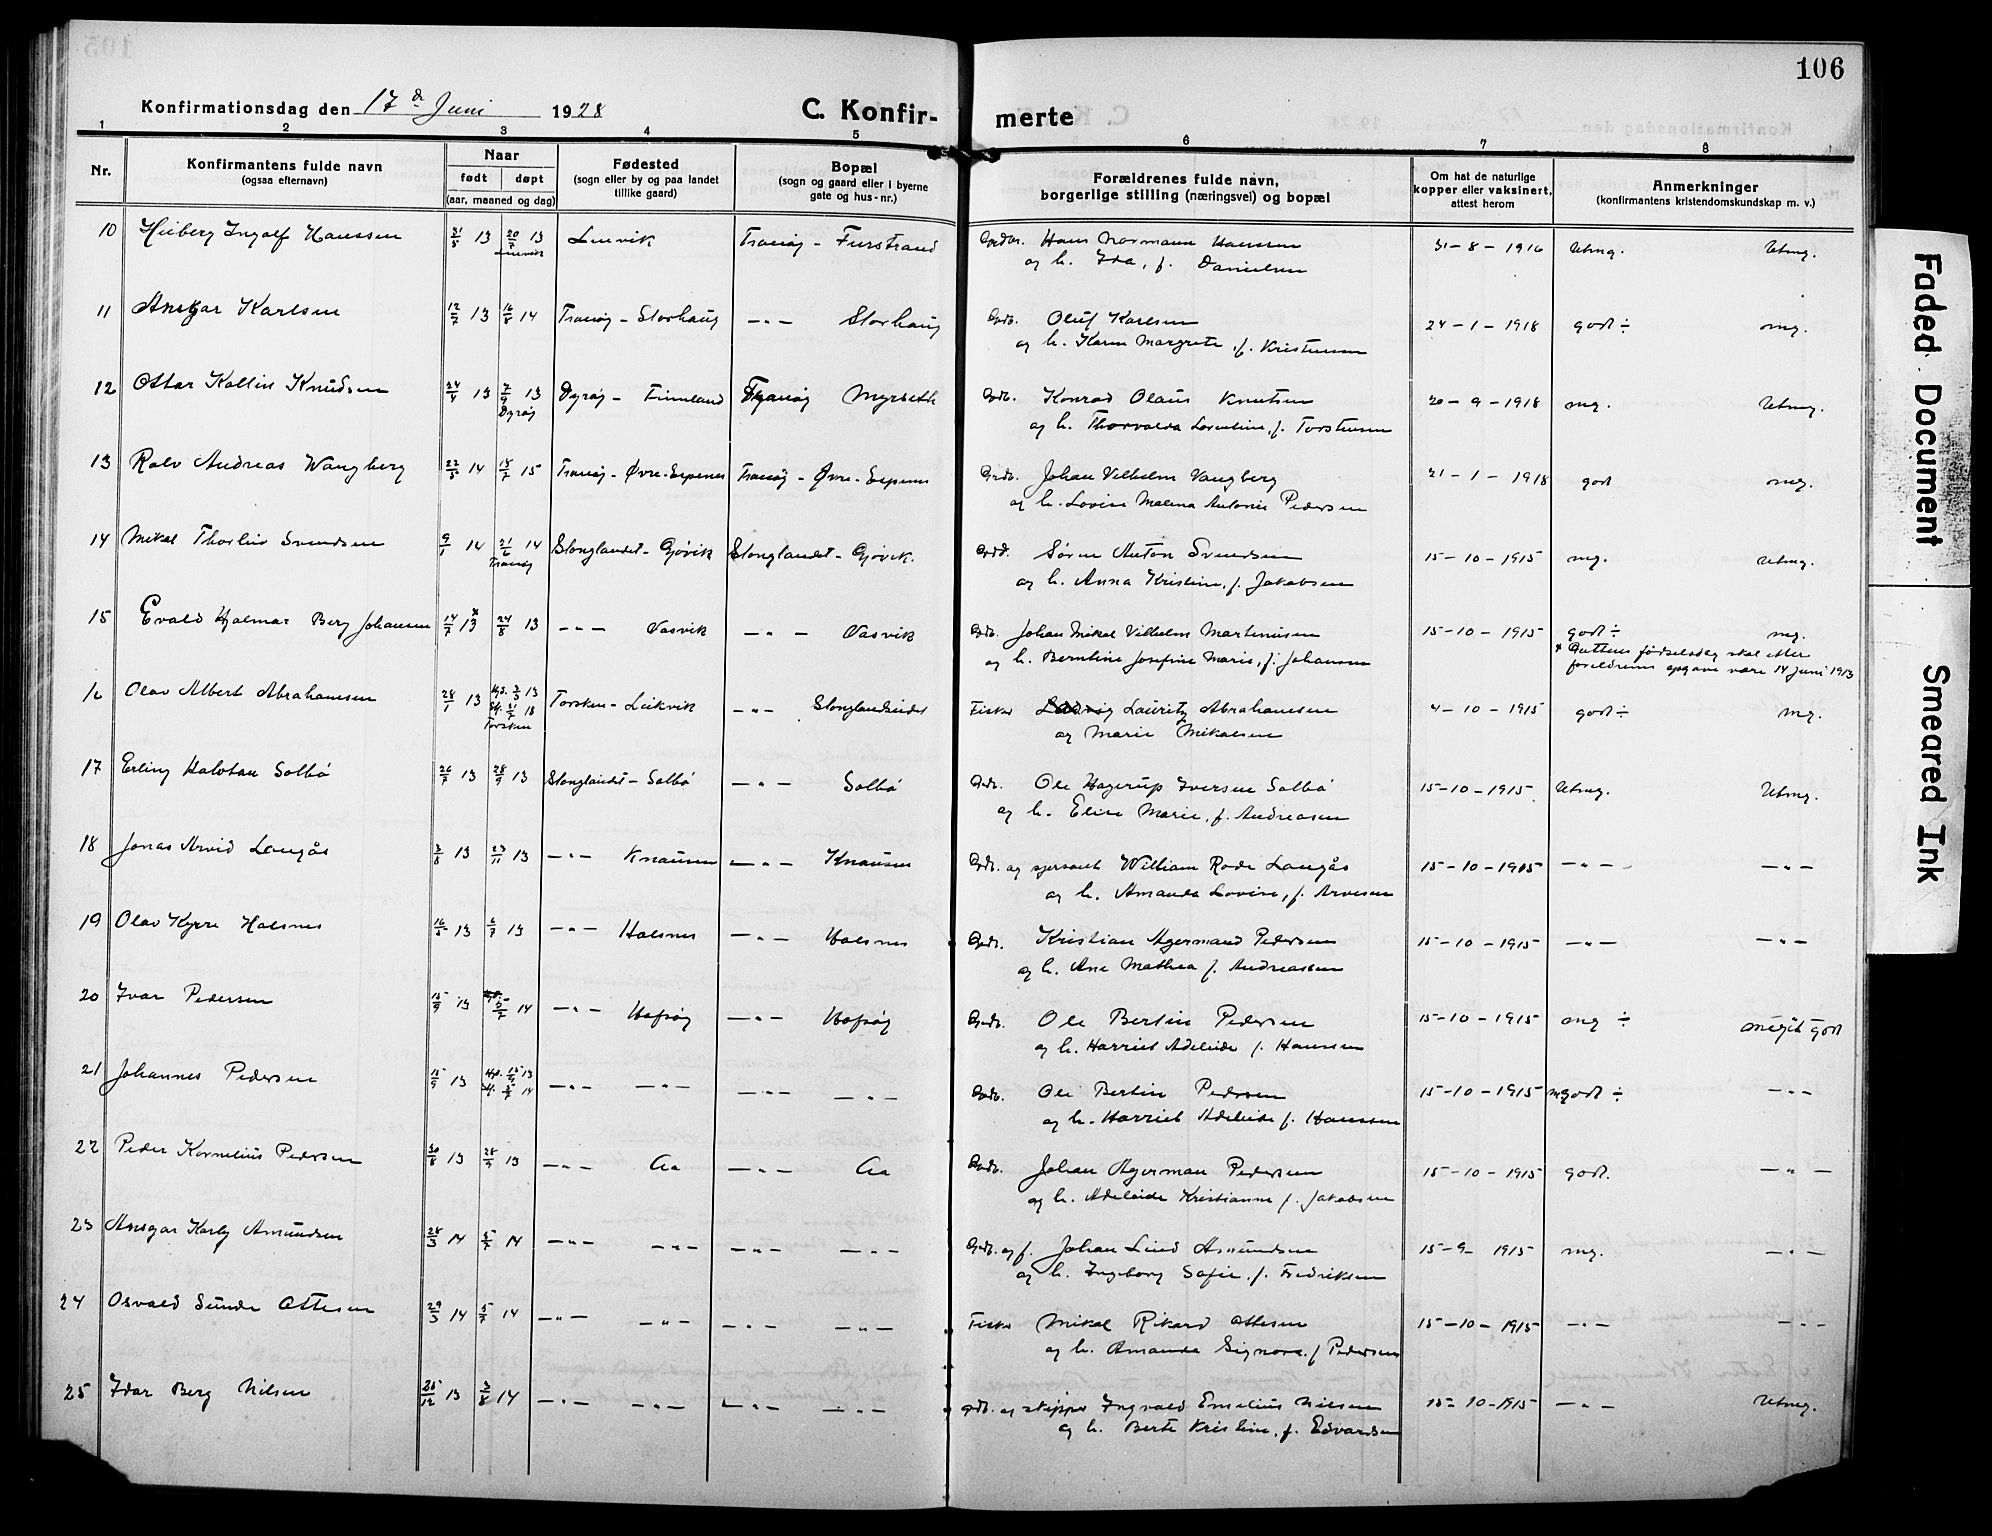 106
Konfirmationsdag den 17de Juni 1928
C. Konfirmerte
1 2 3 4 5 6 7 8
Nr.
Konfirmantens fulde navn
(ogsaa efternavn)
Naar
født døpt
(aar, maaned og dag)
Fødested
(sogn eller by og paa landet
tillike gaard)
Bopæl
(sogn og gaard eller i byerne
gate og hus-nr.)
Forældrenes fulde navn,
borgerlige stilling (næringsvei) og bopæl
Om hat de naturlige
kopper eller vaksinert,
attest herom
Anmerkninger
(konfirmantens kristendomskundskap m. v.)
10 Ingolf Hanssen 21/5 13 20/7 13 Lenvik Tranøy - Furstrand Hans Normann Hanssen 31-8-1916 Utmg. Utmg.
Lenvik og h. Ida, f. Danielsen
11 Ansgar Karlsen 12/7 13 16/8 14 Tranøy - Storhaug -"- Storhaug Gbr. Oluf Karlsen 24-1-1918 godt ÷ mg.
og h. Karen Margrete, f. Kristensen
12 Ottar Kollin Knudsen 24/4 13 7/9 13 Dyrøy - Finnland Tranøy Myrseth Gbr. Konrad Olaus Knutsen 20-9-1918 mg. Utmg.
Dyrøy og h. Thorvalda Lorentine, f. Torstensen
13 Rolv Andreas Wangberg 22/5 14 18/7 15 Tranøy - Øvre-Espenes Tranøy - Øvre-Espenes Gbr. Johan Vilhelm Vangberg 21-1-1918 godt mg.
og h. Lovise Malena Antonie Pedersen
14 Mikal Thorleiv Svendsen 9/1 14 21/6 14 Stonglandet - Gjøvik Stonglandet - Gjøvik. Gbr. Søren Anton Svendsen 15-10-1915 mg. Utmg.
Tranøy og h. Anna Kristine, f. Jakobsen
15 Evald Hjalmar Berg Johansen 14/7 13 x 24/8 13 -"- Vasvik -"- Vasvik Gbr. Johan Mikal Vilhelm Martinusen 15-10-1915 godt ÷ mg.
og h. Berntine Josefine Marie, f. Johansen x Guttens fødselsdag skal etter
foreldrenes opgave være 14 juni 1913
16 Olav Albert Abrahamsen 28/1 13 Hjd. 2/3 13 Torsken - Leikvik -"- Stonglandseidet Fisker Lauritz Abrahamsen 4-10-1915 godt ÷ mg.
Torsken og Marie Mikalsen
17 Erling Halvdan Solbø 26/7 13 28/9 13 Stonglandet - Solbø -"- Solbø Gbr. Ole Hagerup Iversen Solbø 15-10-1915 Utmg. Utmg.
og h. Elise Marie, f. Andreasen
18 Jonas Arvid Langås 3/8 13 23/11 13 -"- Knausen -"- Knausen Gbr. og sersjant William Rode Langås 15-10-1915 -"- -"-
og h. Amanda Lovise, f. Arnesen
19 Olav Kyrre Halsnes 16/5 13 6/7 13 -"- Halsnes -"- Halsnes Gbr. Kristian Agermand Pedersen 15-10-1915 -"- -"-
og h. Ane Mathea f. Andreassen
20 Ivar Pedersen 15/9 13 5/7 14 -"- Hofsøy -"- Hofsøy Gbr. Ole Bertin Pedersen 15-10-1915 mg ÷ meget godt
og h. Harriet Adeleide f. Hanssen
21 Johannes Pedersen 15/9 13 Hjd. 15/9 13 -"- -"- -"- -"- Gbr. Ole Bertin Pedersen 15-10-1915 mgodt ÷ -"-
5/7 14 og h. Harriet Adeleide f. Hanssen
22 Peder Kornelius Pedersen 30/8 13 28/9 13 -"- Aa -"- Aa Gbr. Johan Agerman Pedersen 15-10-1915 godt. -"-
og h. Adeleide Kristianne f. Jakobsen
23 Ansgar Karly Amundsen 28/3 14 5/7 14 -"- -"- -"- -"- Gbr. og f. Johan Lind Amundsen 15-9-1915 mg. -"-
og h. Ingeborg Sofie, f. Fredriksen
24 Osvald Sunde Ottesen 29/3 14 5/7 14 -"- -"- -"- -"- Fisker Mikal Rikard Ottesen 15-10-1915 -"- -"-
og h. Amanda Signora f Pedersen
25 Idar Berg Nilsen 25/12 13 3/8 14 -"- -"- -"- -"- gbr. og skipper Ingvald Emelius Nilsen 15-10-1915 -"- Utmg.
og h. Berte Kristine, f. Edvardsen
Faded Document
Smeared Ink